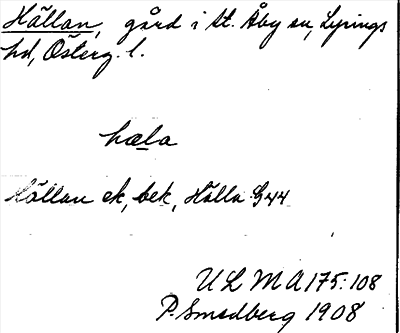 Hällan, gård i St. Åby sn, Lysings
hd, Österg. l.
hæla
Hällan ek, bek, Hälla G44
ULMA 175:108
P. Smedberg 1908